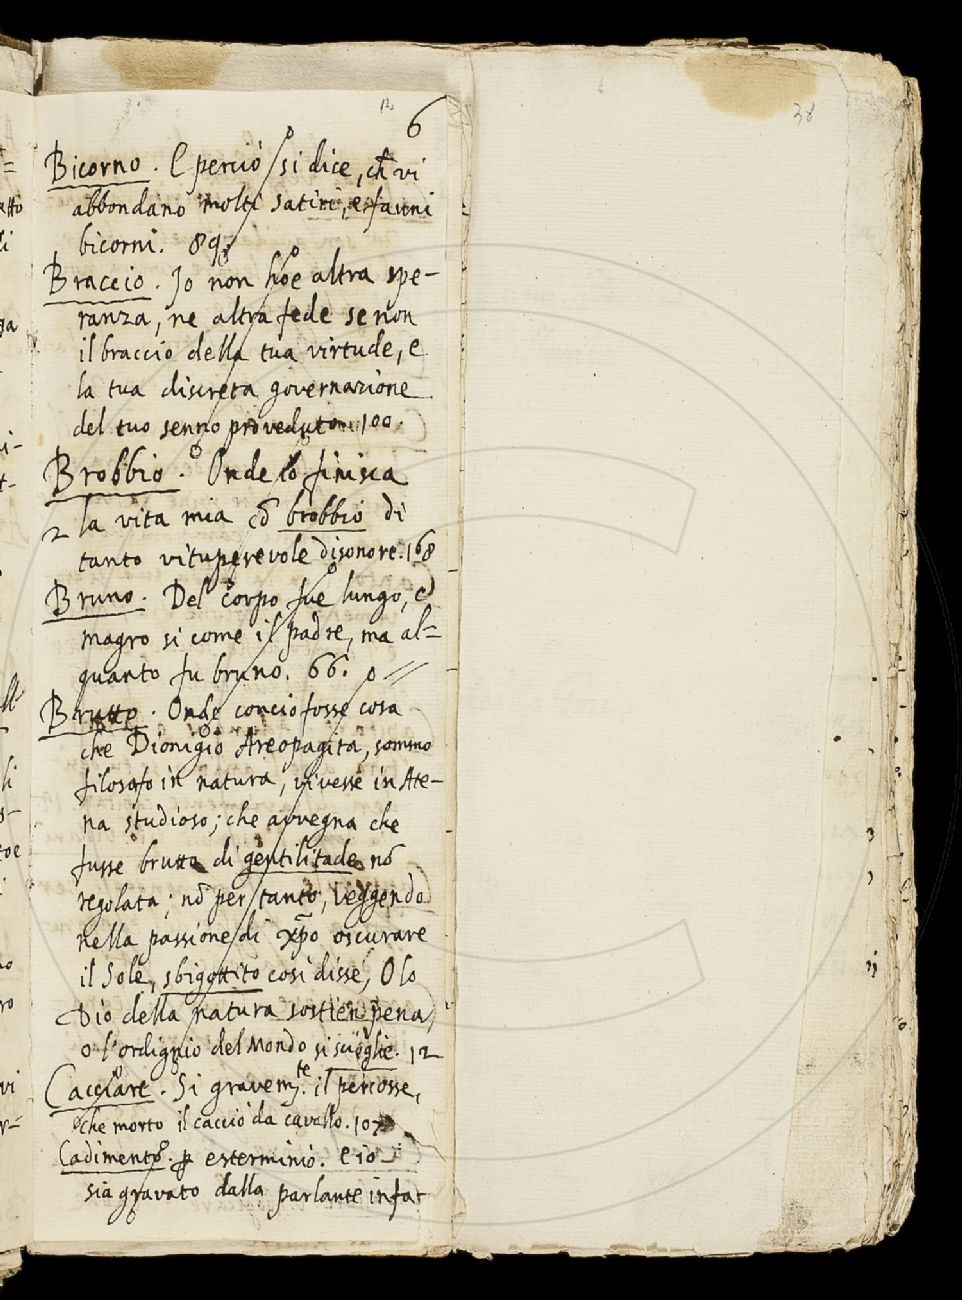 12
6
38
Bicorno. E perciò si dice, ch̄ vi
abbondano molti satiri, e fauni
bicorni. 89
Braccio. Io non hoe altra spe-
ranza, ne altra fede se non
il braccio della tua virtude, e
la tua discreta governazione
del tuo senno proveduto. 100.
Brobbio. Onde io finisca
2 la vita mia cō brobbio di
tanto vituperevole disonore. 168
Bruno. Del corpo fue lungo, e
magro si come il padre, ma al=
quanto fu bruno. 66.
Brutto. Onde concio fosse cosa
che Dionigio Areopagita, sommo
filosofo in natura, vivesse in Ate-
na studioso; che avvegna che
fusse brutto di gentilitade nō
regolata; nō per tanto, veggendo
nella passione di xp̄o oscurare
il Sole, sbigottito così disse, O lo
Dio della natura sostien pena,
o l'ordignio del Mondo si scioglie. 12
Cacciare. Si gravem.te il percosse,
che morto il cacciò da cavallo. 107
Cadimento. ꝑ esterminio. e io
sia gravato dalla parlante infa-